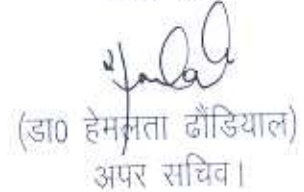 (डा0 हेमलता ढौंडियाल)
अपर सचिव।